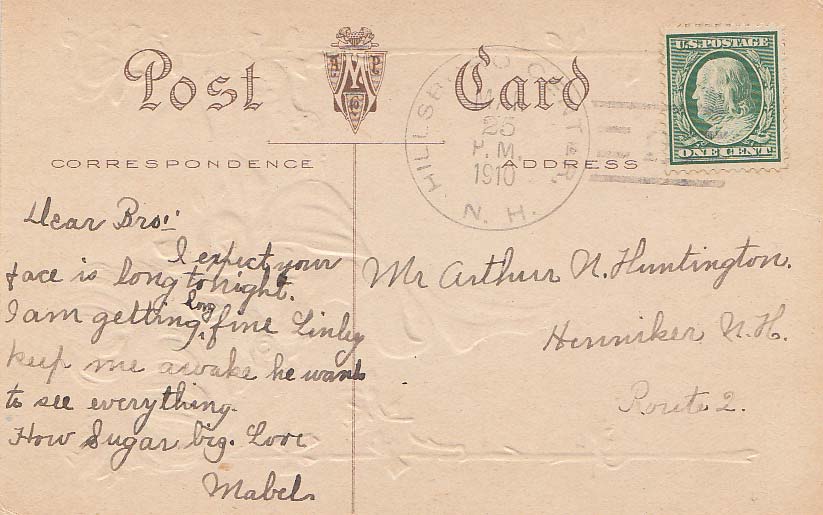 Post Card
U.S. POSTAGE
ONE CENT
HILLSBORO
25
P.M.
1910
N. H.
CORRESPONDENCE
ADDRESS
Dear Bro:'
I expect your
face is long to night.
I am getting long fine Linley
keep me awake he wants
to see everything.
How Sugar big. Love
Mabel.
Mr Arthur N. Huntington.
Henniker N.H.
Route 2.